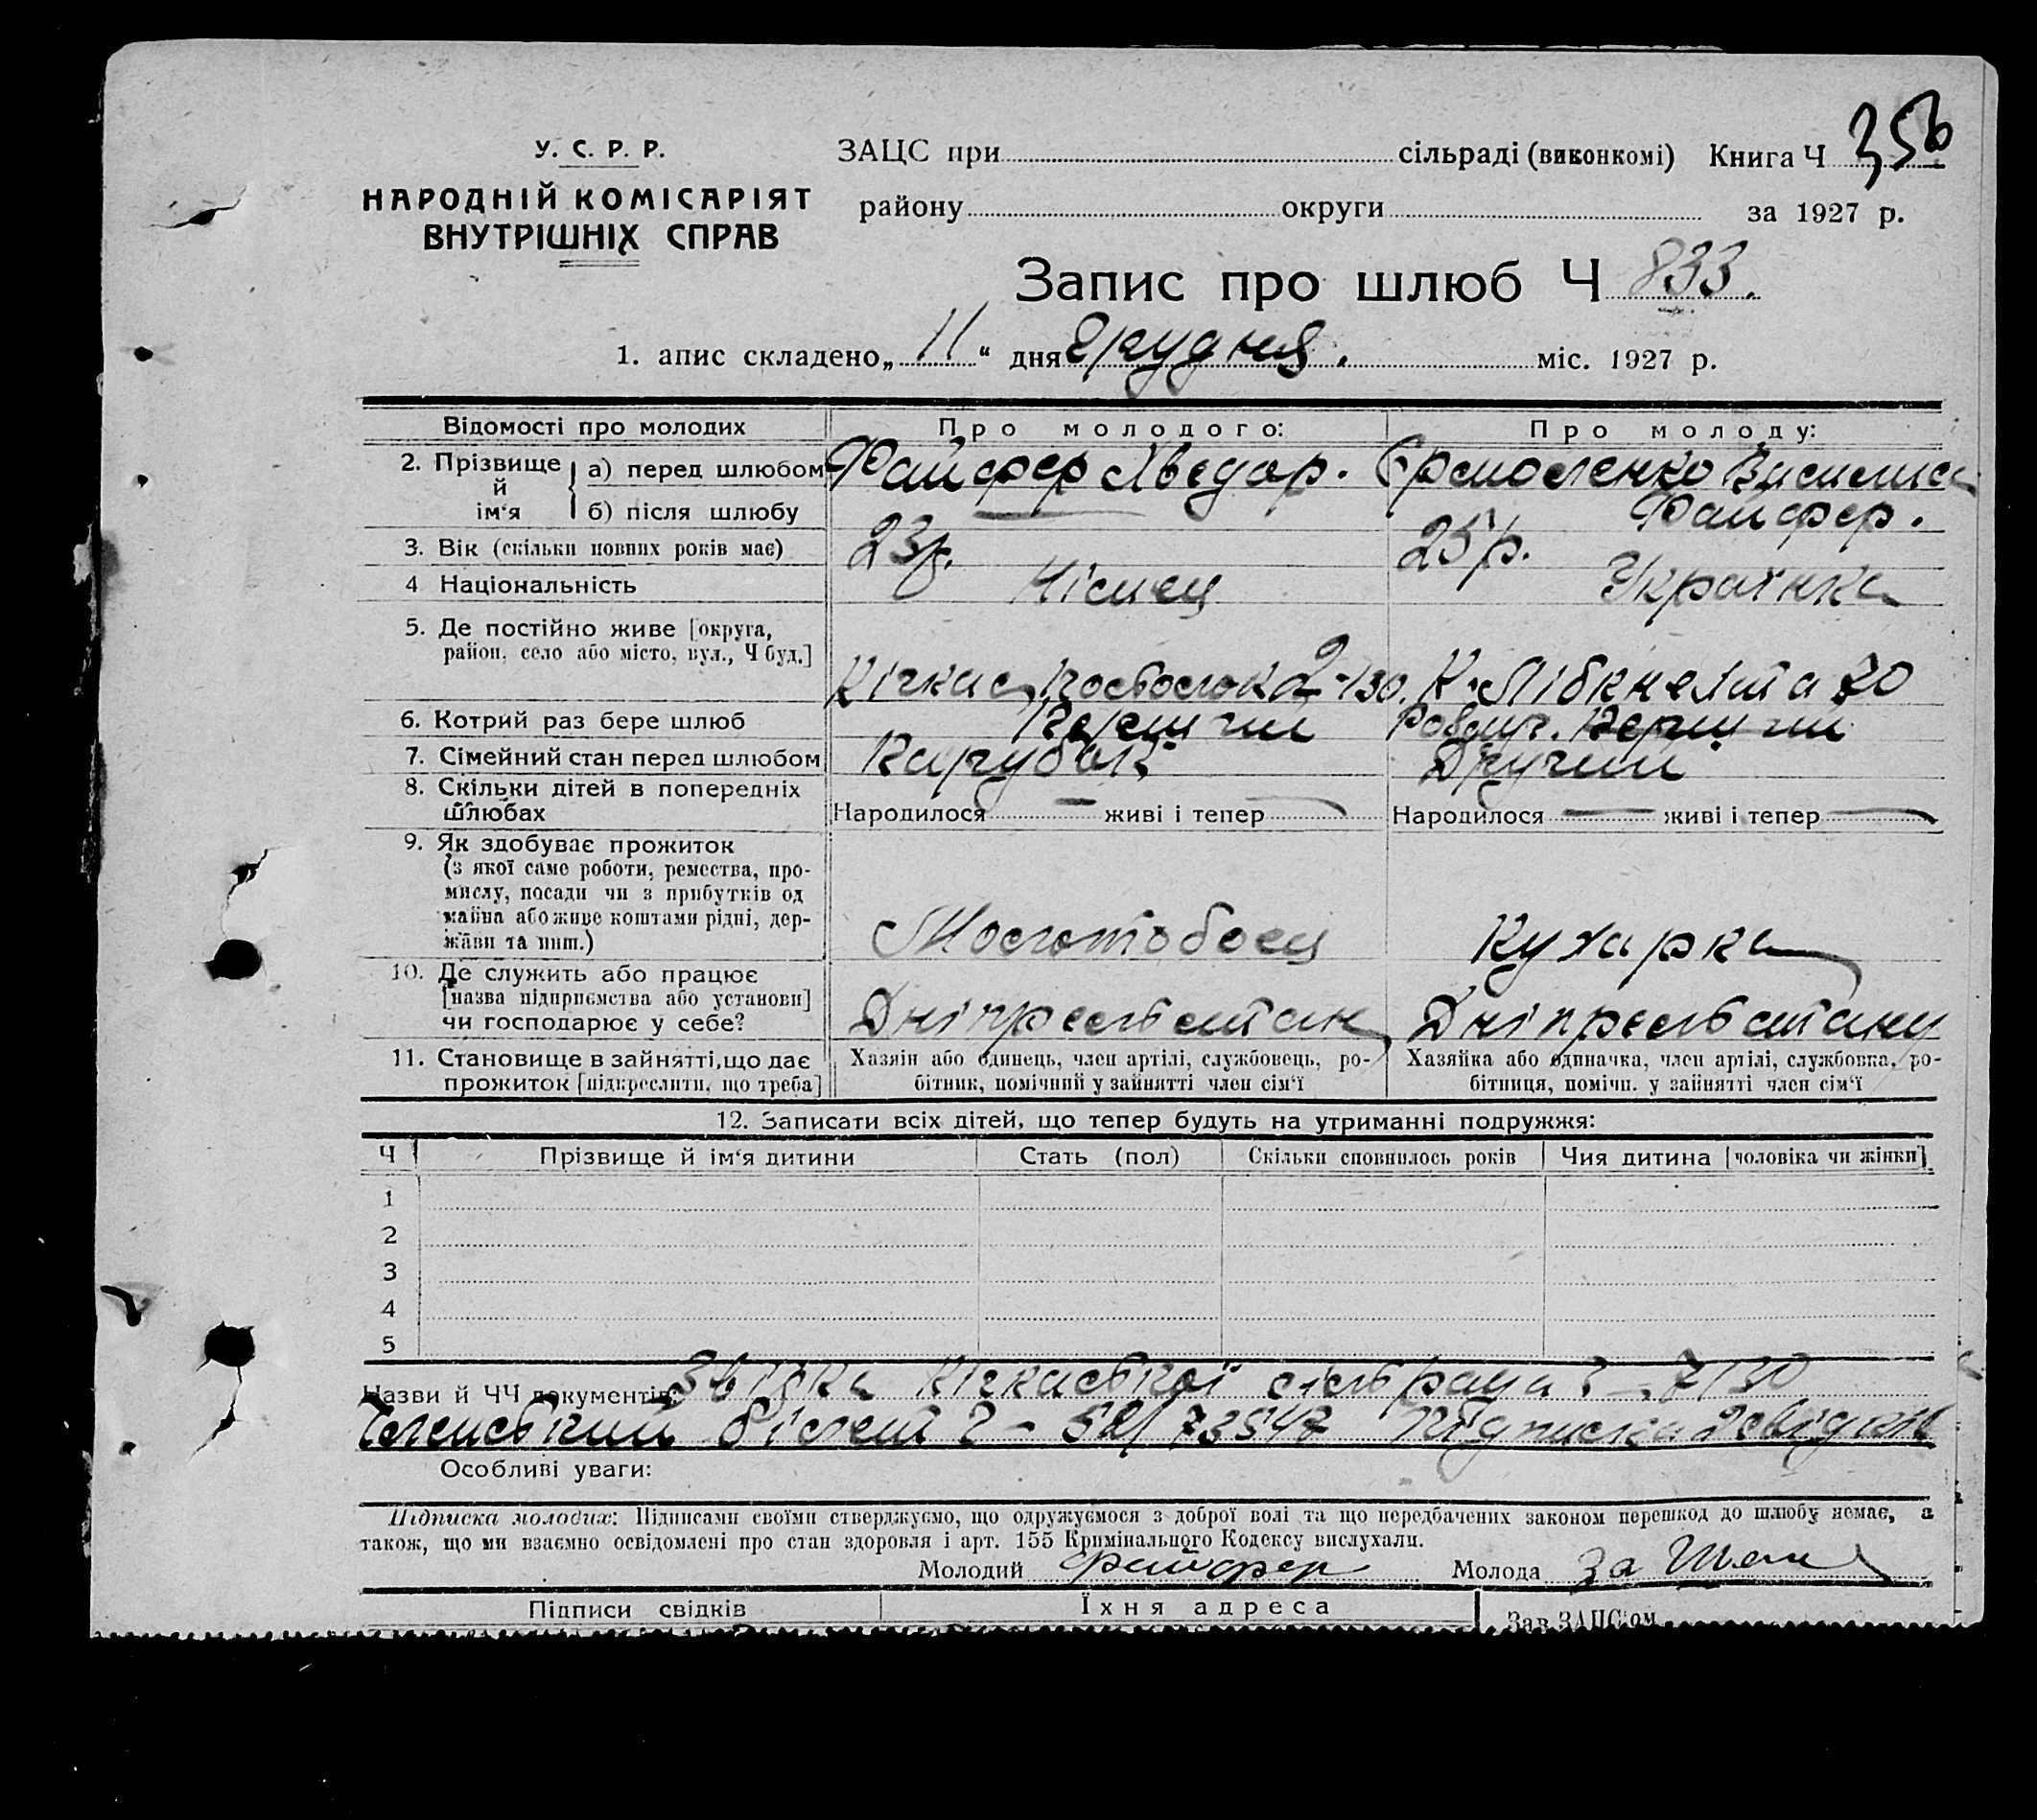 У. С. Р. Р.
НАРОДНІЙ КОМІСАРІЯТ
ВНУТРІШНІХ СПРАВ
ЗАЦС при сільраді (виконкомі) Книга Ч 356
району округи за 1927 р.
Запис про шлюб Ч 833.
1. апис складено „ 11 “ дня Грудня. міс. 1927 р.
Відомості про молодих Про молодого: Про молоду:
2. Прізвище й ім‘я
а) перед шлюбом Файфер Хведор. Єрмоленко Василиса
б) після шлюбу Файфер.
3. Вік (скільки повних років має) 23р. 25р.
4 Національність Німець Українка
5. Де постійно живе [округа,
район, село або місто, вул., Ч буд.]
Кічкас, 2-130. К. Лібкнехта 70
6. Котрий раз бере шлюб Перший Розлуч. Перший
7. Сімейний стан перед шлюбом Парубок Другий
8. Скільки дітей в попередніх
шлюбах Народилося — живі і тепер — Народилося — живі і тепер —
9. Як здобуває прожиток
(з якої саме роботи, ремества, про-
мислу, посади чи з прибутків од
майна або живе коштами рідні, дер-
жави та инш.)
Молотобоец Кухарка
10. Де служить або працює
[назва підприємства або установи]
чи господарює у себе?
Дніпрельстан Дніпрельстану
11. Становище в зайнятті, що дає
прожиток [підкреслити, що треба]
Хазяїн або одинець, член артілі, службовець, ро-
бітник, помічний у зайнятті член сім‘ї
Хазяйка або одиначка, член артілі, службовка, ро-
бітниця, помічн. у зайнятті член сім‘ї
12. Записати всіх дітей, що тепер будуть на утриманні подружжя:
Ч Прізвище й ім‘я дитини Стать (пол) Скільки сповнилось років Чия дитина [чоловіка чи жінки]
1
2
3
4
5
Назви й ЧЧ документів: Звідка Кічкаської сільради Ч – 7130
Членський білет Ч – 52/73547 Підписка
Особливі уваги:
Підписка молодих: Підписами своїми стверджуємо, що одружуємося з доброї волі та що передбачених законом перешкод до шлюбу немає, а
також, що ми взаємно освідомлені про стан здоровля і арт. 155 Кримінального Кодексу вислухали.
Молодий Файфер Молода за
Підписи свідків Їхня адреса Зав ЗАЦС‘ом